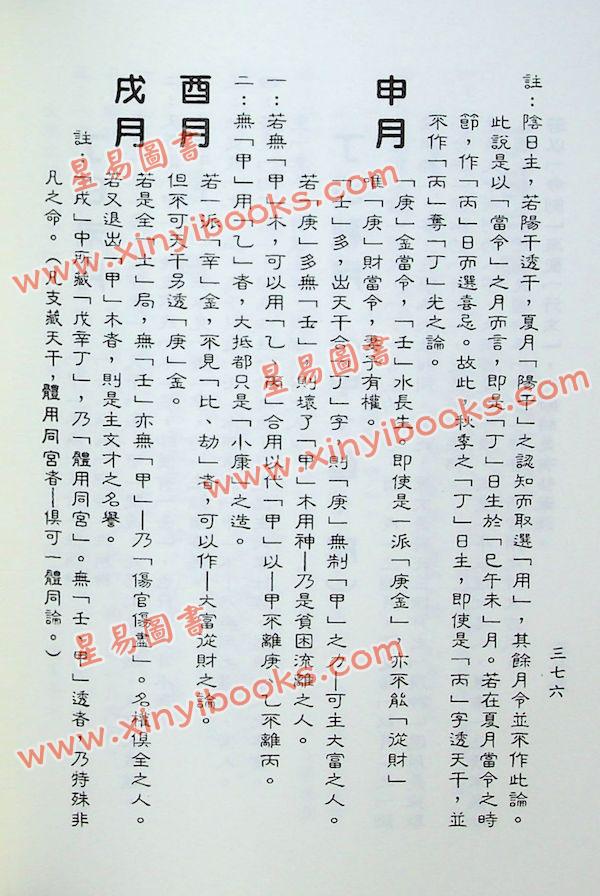 三七六
註：陰日主，若陽干透干，夏月「陽干」之認知而取選「用」，其餘月令並不作此論。
此說是以「當令」之月而言，即是「丁」日生於「巳午未」月。若在夏月當令之時
節，作「丙」日而選喜忌。故此，秋季之「丁」日主，即使是「丙」字透天干，並
不作「丙」奪「丁」光之論。
申月
「庚」金當令，「壬」水長生。即使是一派「庚金」，亦不能「從財」
唯「庚」財當令，妻子有權。
「壬」多，出天干合「丁」字，則「庚」無制「甲」之力—可主大富之人。
若「庚」多無「壬」，則壞了「甲」木用神—乃是貧困流離之人。
一：若無「甲」木，可以用「乙、丙」合用以代「甲」以—甲不離庚、乙不離丙。
二：無「甲」用「乙」者，大抵都只是「小康」之造。
酉月
若一派「辛」金，不見「比、劫」者，可以作—大富從財之論。
但不可天干另透「庚」金。
戌月
若是全「土」局，無「壬」亦無「甲」—乃「傷官傷盡」。名權俱全之人。
若又退出「甲」木者，則是主文才之名譽。
註：「戌」中所藏「戊辛丁」，乃「體用同宮」。無「壬、甲」透者，乃特殊非
凡之命。（凡支藏天干，體用同宮者—俱可一體同論。）
星易圖書
www.xinyibooks.com
星易圖書
www.xinyibooks.com
星易圖書
www.xinyibooks.com
星易圖書
www.xinyibooks.com